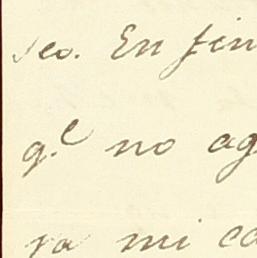 seo. En fin
q.e no ag
ra mi ca